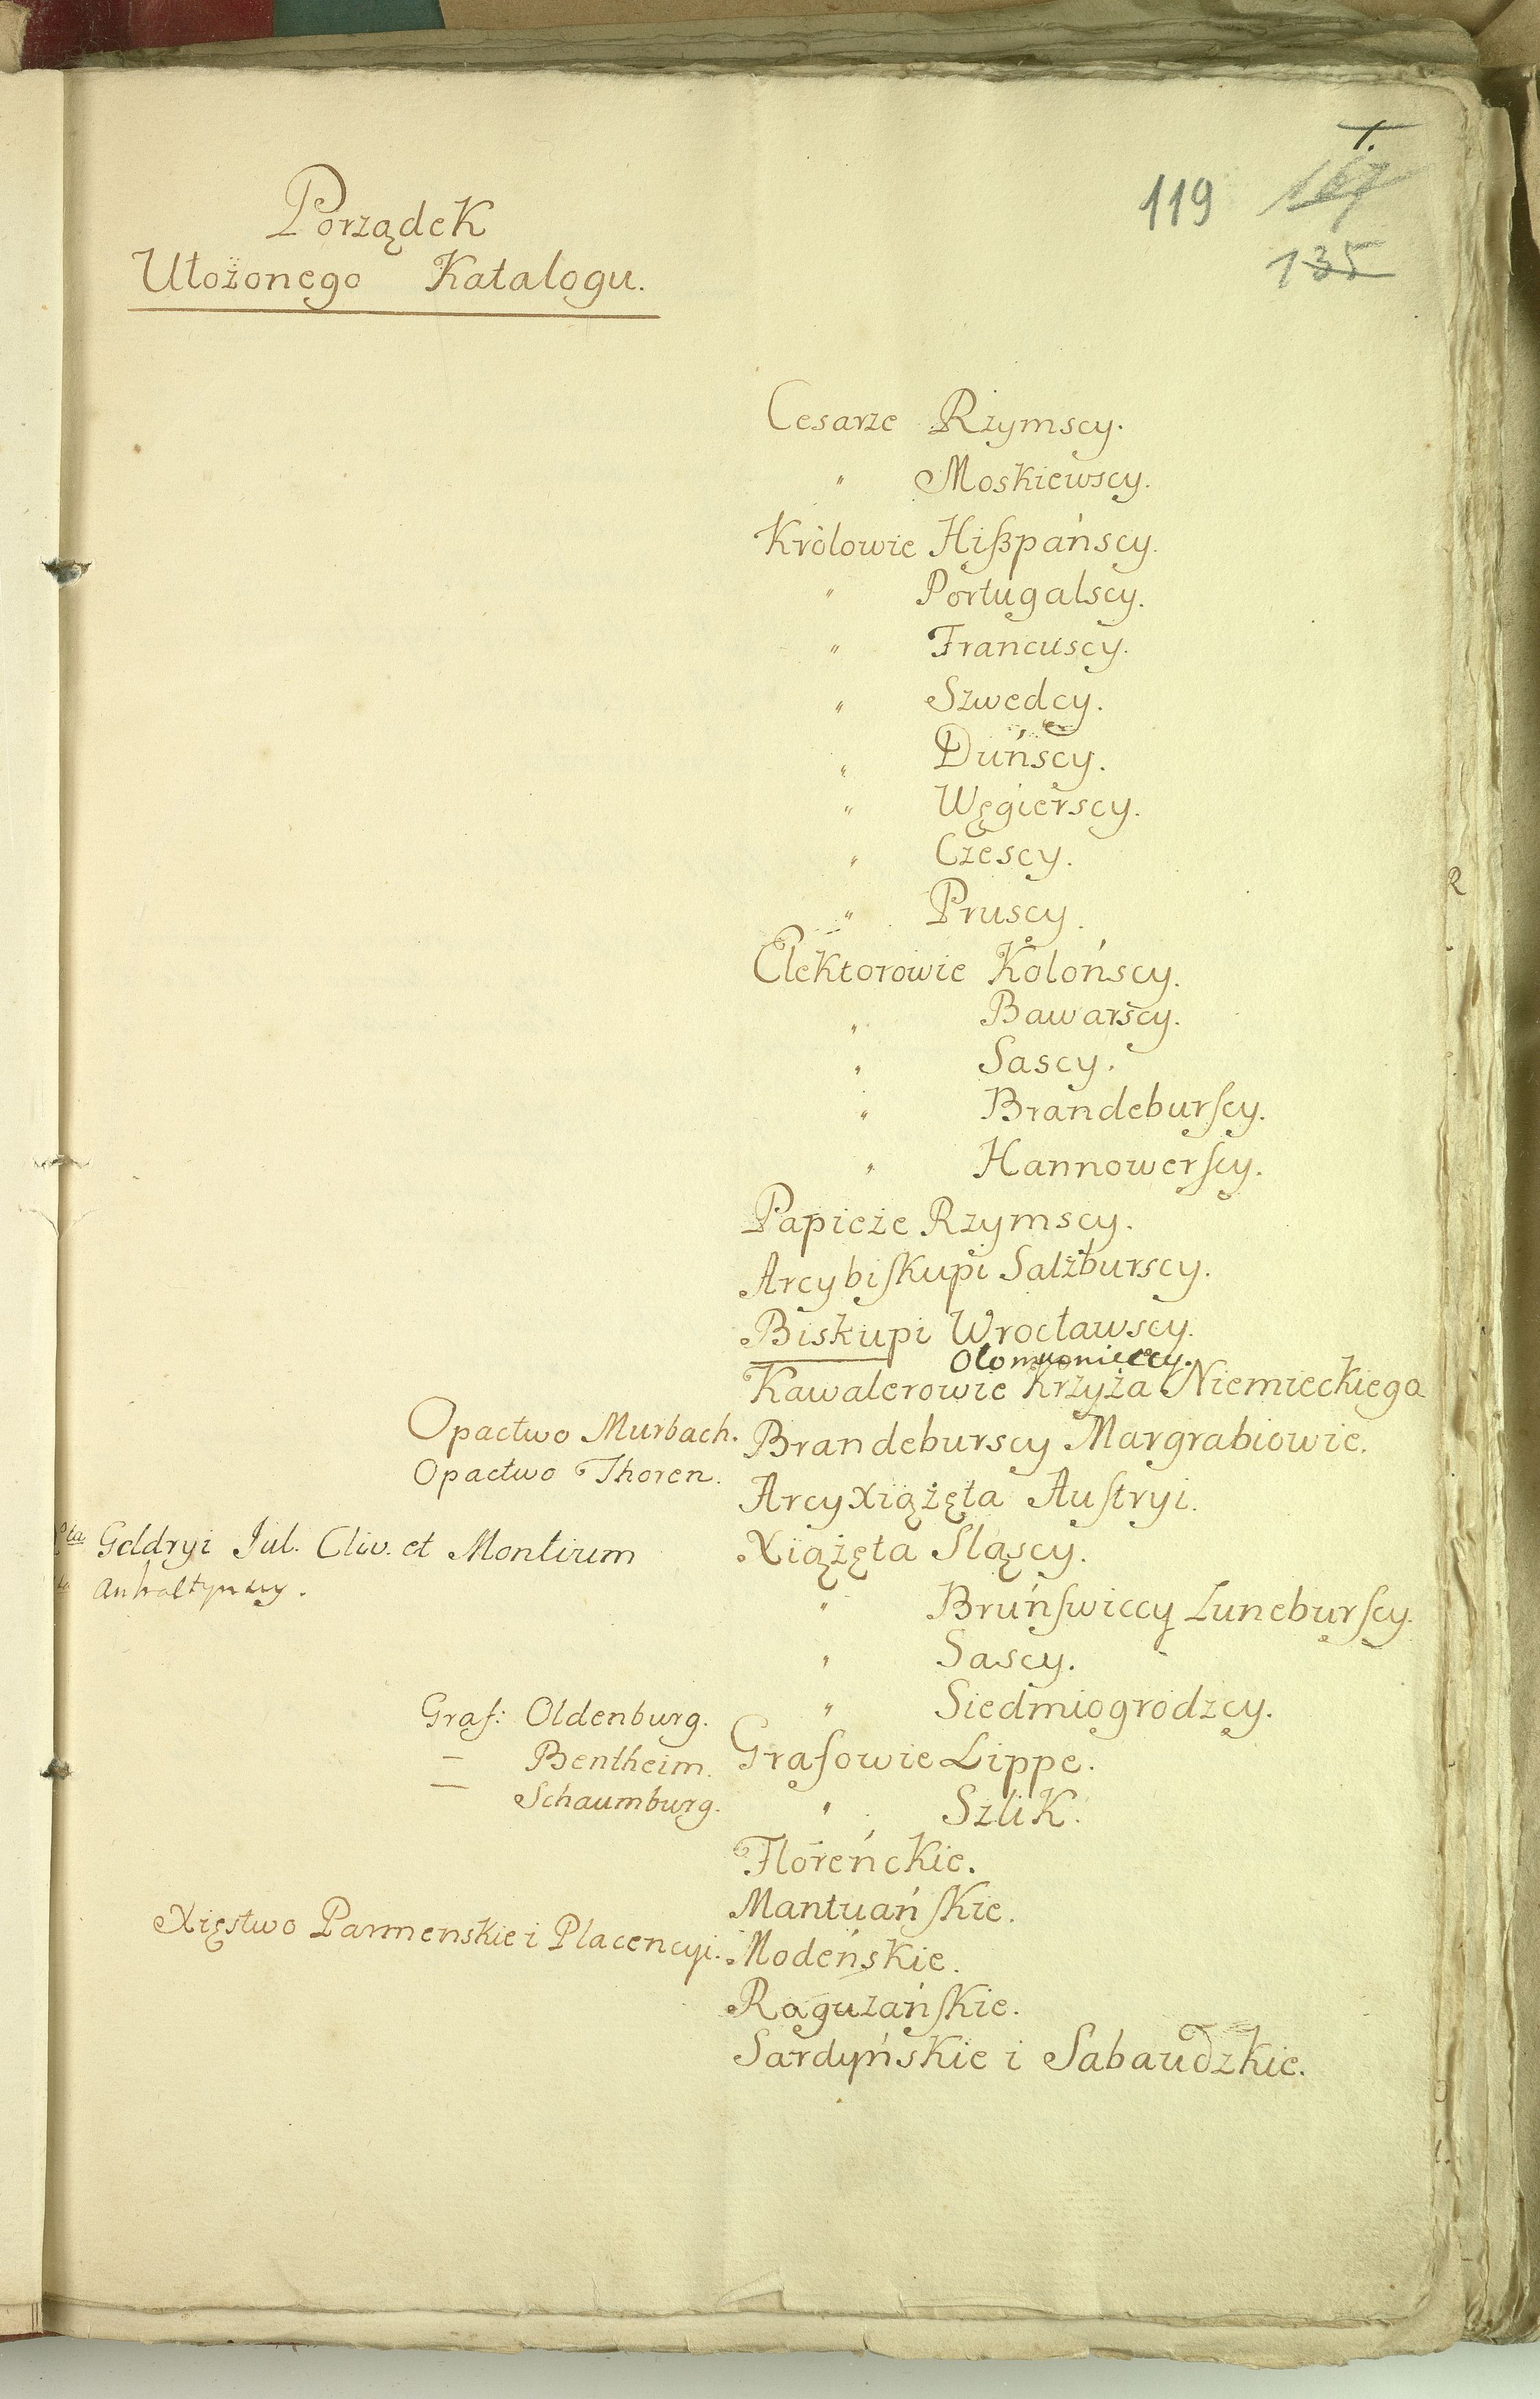 1.
119 167
135
Porządek
Ułożonego Katalogu.
Cesarze Rzymscy.
" Moskiewscy.
Królowie Hißpańscy.
" Portugalscy.
" Francuscy.
" Szwedcy.
" Duńscy.
" Węgierscy.
" Czescy.
" Pruscy.
Elektorowie Kolońscy.
" Bawarscy.
" Sascy.
" Brandeburſcy.
" Hannowerſcy.
Papieże Rzymscy.
Arcybiſkupi Salzburscy.
Biskupi Wrocławscy.
Olomunieccy.
Kawalerowie Krzyża Niemieckiego
Opactwo Murbach. Brandeburscy Margrabiowie.
Opactwo Thoren.
Arcyxiążęta Auſtryi.
Geldryi Jul. Cliv. et Montium Xiążęta Sląscy.
Anhaltynscy.
" Bruńſwiccy Luneburſcy.
" Sascy.
Graf: Oldenburg. " Siedmiogrodzcy.
— Bentheim. Grafowie Lippe.
— Schaumburg. " Szlik.
Floreńckie.
Mantuańſkie.
Xięstwo Parmenskie i Placencyi. Modeńskie.
Raguzańſkie.
Sardyńskie i Sabaudzkie.